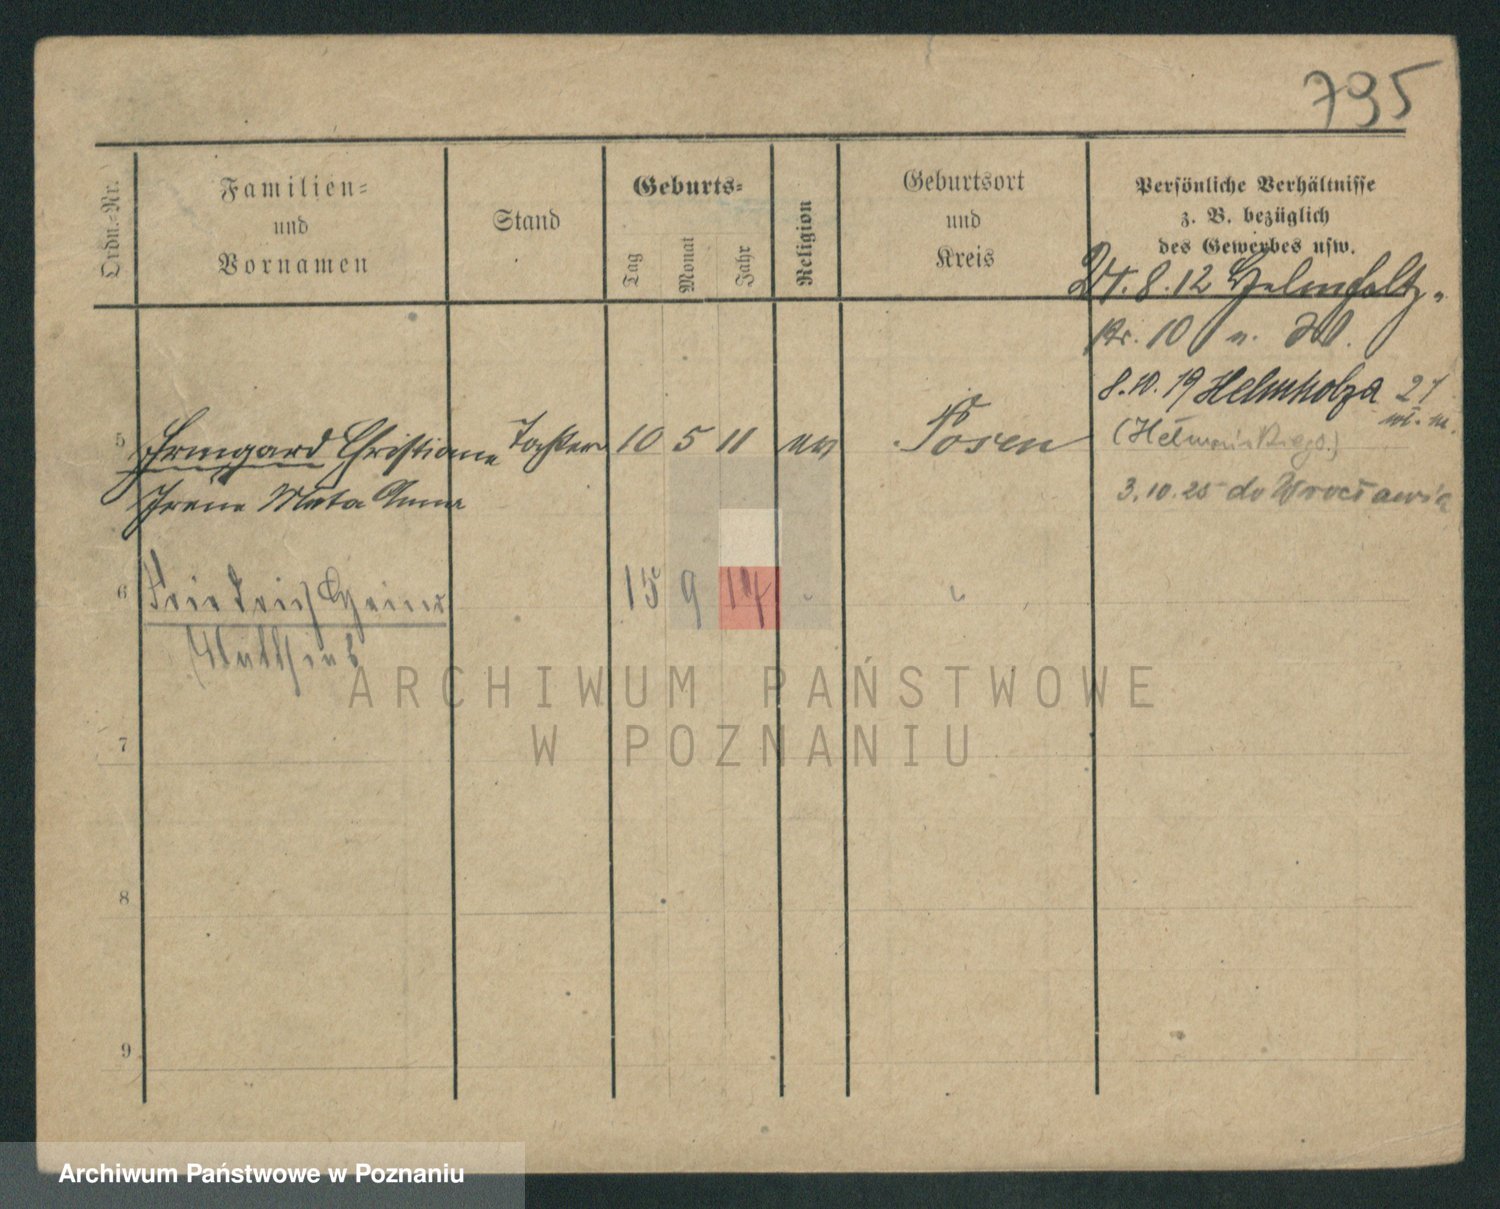 795
Ordn.-Nr.
Familien-
und
Vornamen
Stand
Geburts-
Tag
Monat
Jahr
Religion
Geburtsort
und
Kreis
Persönliche Verhältnisse
z. B. bezüglich
des Gewerbes usw.
24. 8. 12
10
8. 10. 19 Helmholza 21
5 Irmgard Christiane Tochter 10 5 11 ev Posen
3. 10. 25 do Wrocławia
Irene Meta Anna
6 Friedrich Heinz 15 9 14 "
Matthias
ARCHIWUM PAŃSTWOWE
W POZNANIU
7
8
9
Archiwum Państwowe w Poznaniu